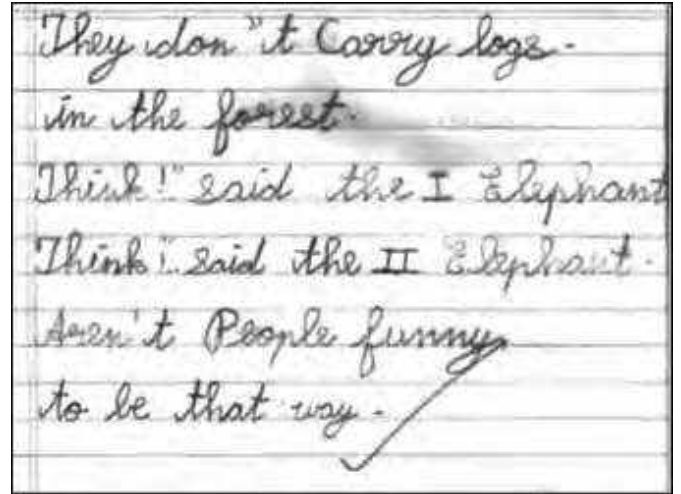 They don"t Carry logs.
in the forest.
Think!" said the I Elephant
Think!" said the II Elephant.
Aren't People funny
to be that way.